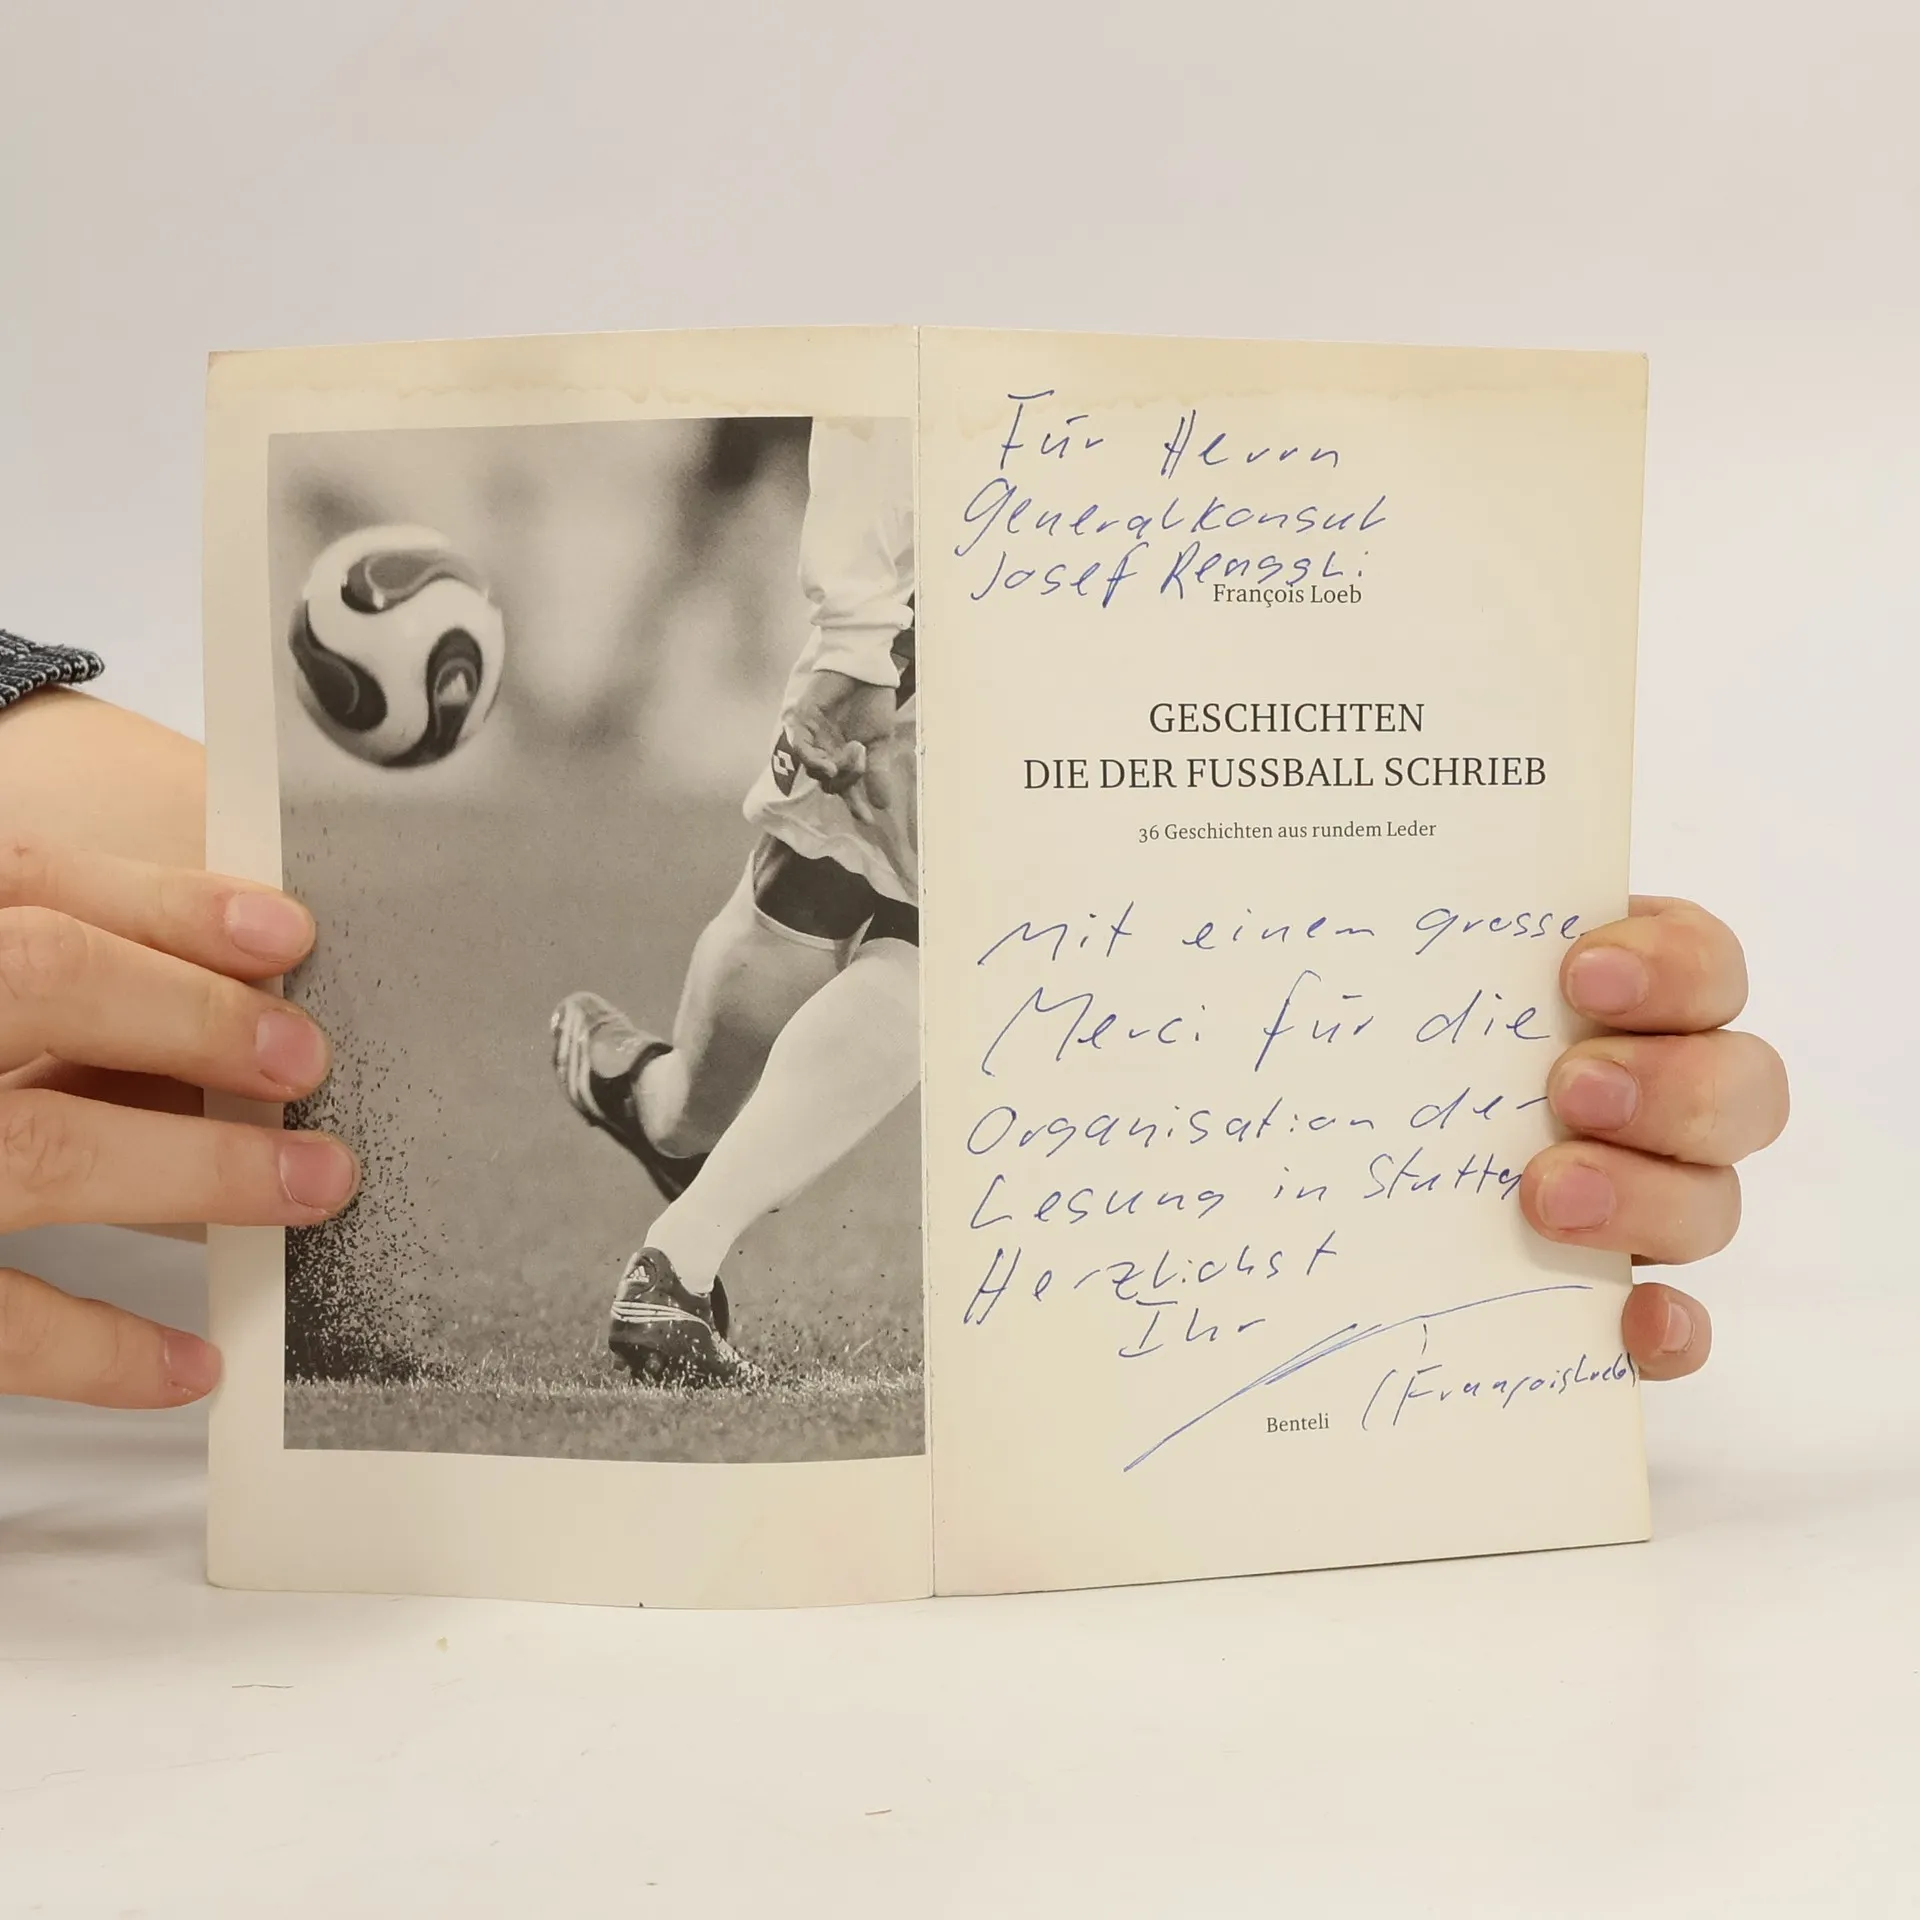 Für Herrn
Generalkonsul
Josef Renggli
François Loeb
GESCHICHTEN
DIE DER FUSSBALL SCHRIEB
36 Geschichten aus rundem Leder
Mit einem grosse
Merci für die
Organisation der
Lesung in Stuttg
Herzlichst
Ihr
(François Loeb)
Benteli